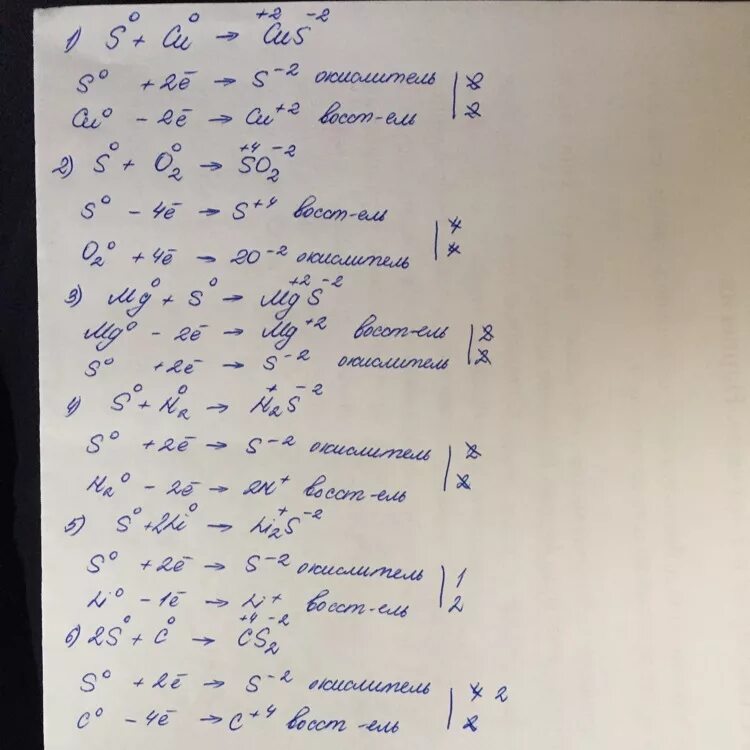 1) S⁰ + Cu⁰ → Cu⁺²S⁻²
S⁰ +2ē → S⁻² окислитель | 2
Cu⁰ - 2ē → Cu⁺² восст-ель | 2
2) S⁰ + O₂⁰ → S⁺⁴O₂⁻²
S⁰ - 4ē → S⁺⁴ восст-ель | 4
O₂⁰ + 4ē → 2O⁻² окислитель | 4
3) Mg⁰ + S⁰ → Mg⁺²S⁻²
Mg⁰ - 2ē → Mg⁺² восст-ель | 2
S⁰ +2ē → S⁻² окислитель | 2
4) S⁰ + H₂⁰ → H₂⁺S⁻²
S⁰ +2ē → S⁻² окислитель | 2
H₂⁰ - 2ē → 2H⁺ восст-ель | 2
5) S⁰ + 2Li⁰ → Li₂⁺S⁻²
S⁰ +2ē → S⁻² окислитель | 1
Li⁰ - 1ē → Li⁺ восст-ель | 2
6) 2S⁰ + C⁰ → C⁺⁴S₂⁻²
S⁰ +2ē → S⁻² окислитель | 4 2
C⁰ - 4ē → C⁺⁴ восст-ель | 2